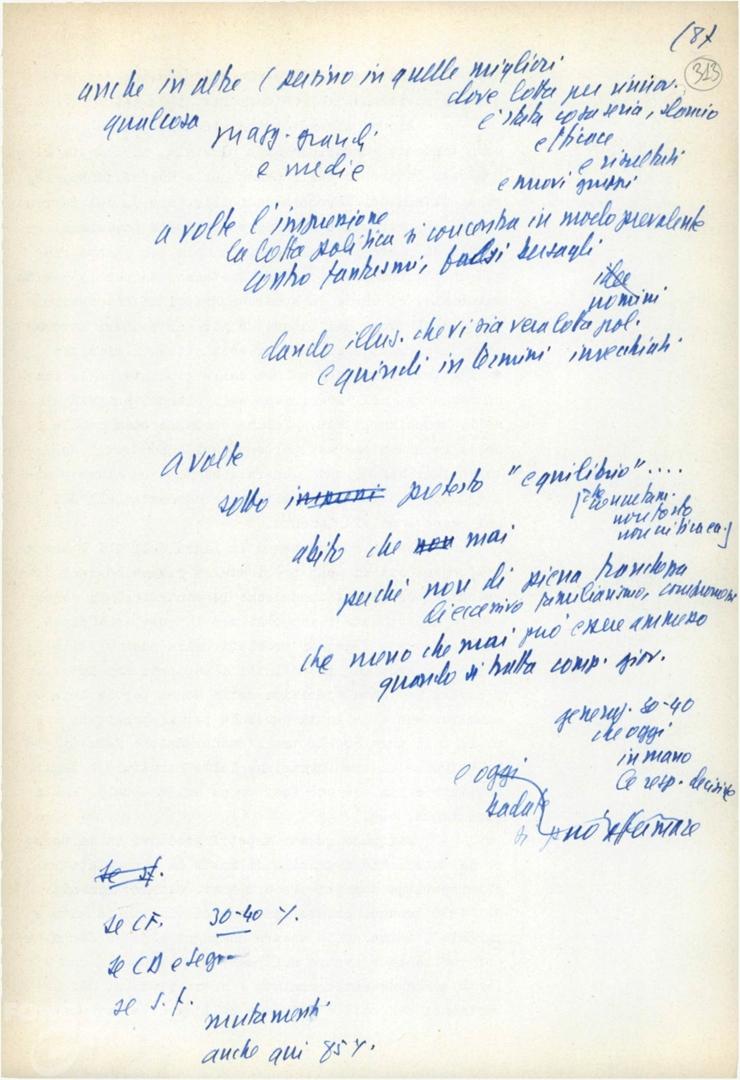 (8)
313
anche in altre (persino in quelle migliori
dove lotta per rinnov.
qualcosa
è stata cosa seria, sforzo
magg. grandi
efficace
e medie
e risultati
e nuovi quadri
a volte l'impressione
la lotta politica si concentra in modo prevalente
contro fantasmi, falsi bersagli
idee
uomini
dando illus. che vi sia vera lotta pol.
e quindi in termini invecchiati
a volte
sotto pretesto "equilibrio"....
non tosto
non critica ca.]
abito che non mai
perché non di piena
di eccessivo familiarismo,
che meno che mai può essere ammesso
quando si tratta comp. giov.
generaz. 30-40
che oggi
in mano
le resp. decisive
e oggi
badate
si può affermare
se s.f.
se CF. 30-40 %
se CD e segr
se s.f.
mutamenti
anche qui 85%.